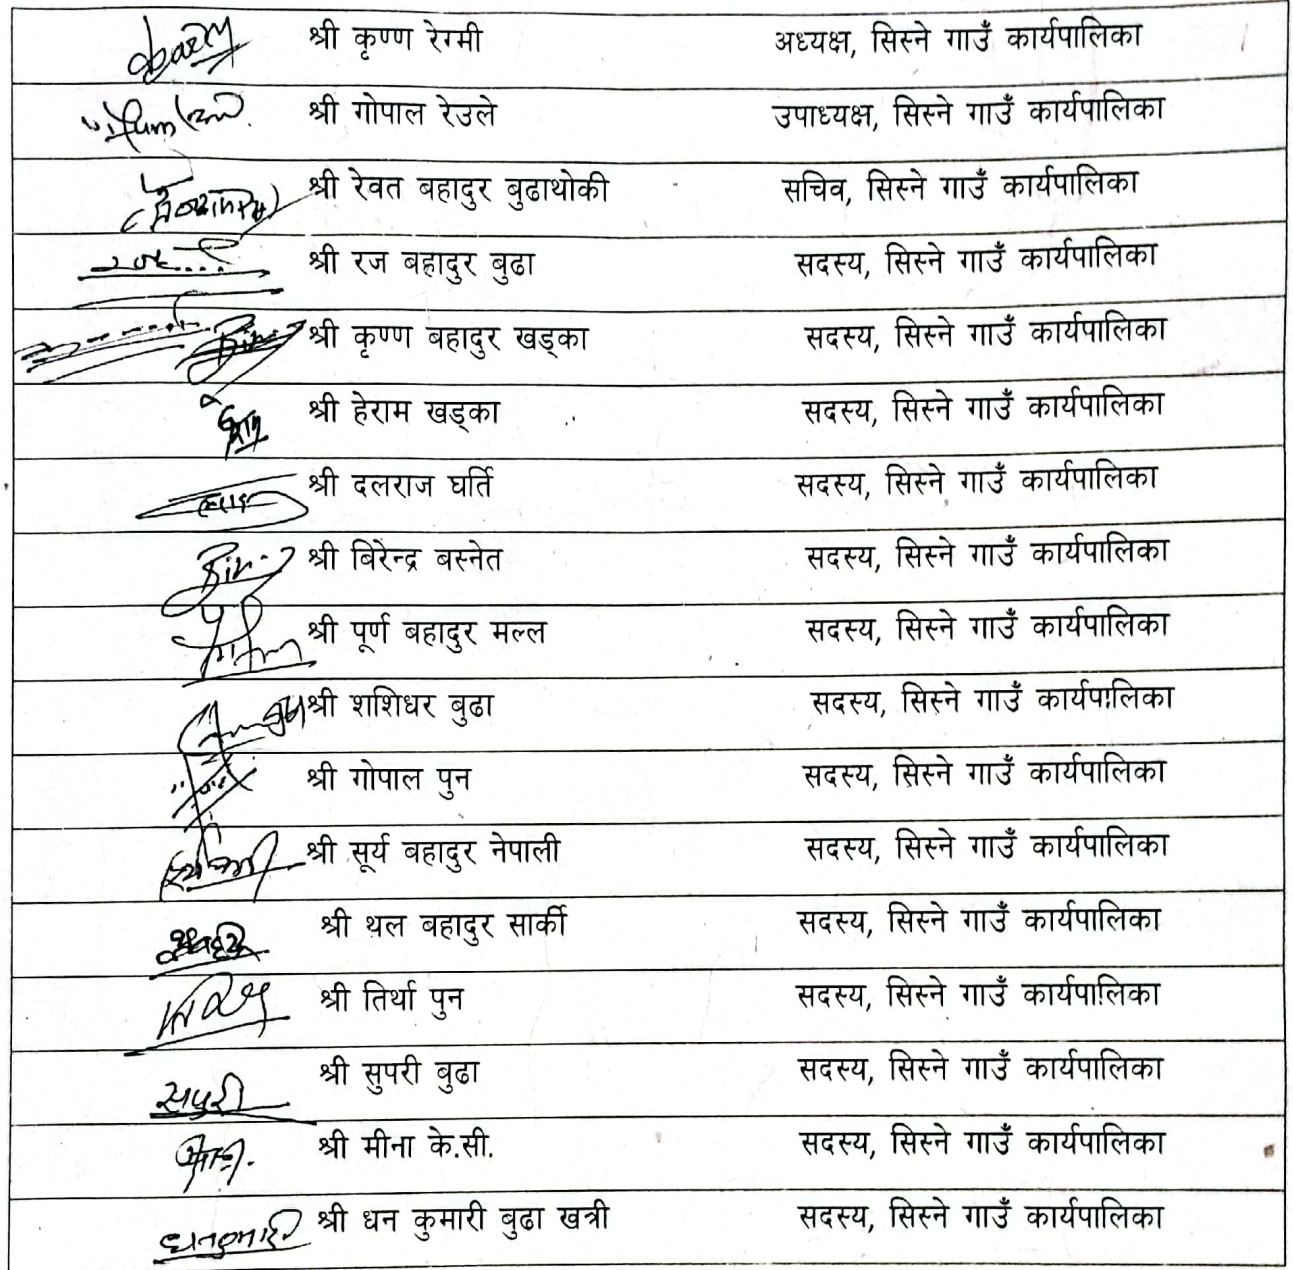 श्री कृष्ण रेग्मी अध्यक्ष, सिस्ने गाउँ कार्यपालिका
श्री गोपाल रेउले उपाध्यक्ष, सिस्ने गाउँ कार्यपालिका
श्री रेवत बहादुर बुढाथोकी सचिव, सिस्ने गाउँ कार्यपालिका
श्री रज बहादुर बुढा सदस्य, सिस्ने गाउँ कार्यपालिका
श्री कृष्ण बहादुर खड्का सदस्य, सिस्ने गाउँ कार्यपालिका
श्री हेराम खड्का सदस्य, सिस्ने गाउँ कार्यपालिका
श्री दलराज घर्ति सदस्य, सिस्ने गाउँ कार्यपालिका
श्री बिरेन्द्र बस्नेत सदस्य, सिस्ने गाउँ कार्यपालिका
श्री पूर्ण बहादुर मल्ल सदस्य, सिस्ने गाउँ कार्यपालिका
श्री शशिधर बुढा सदस्य, सिस्ने गाउँ कार्यपालिका
श्री गोपाल पुन सदस्य, सिस्ने गाउँ कार्यपालिका
श्री सूर्य बहादुर नेपाली सदस्य, सिस्ने गाउँ कार्यपालिका
श्री थल बहादुर सार्की सदस्य, सिस्ने गाउँ कार्यपालिका
श्री तिर्था पुन सदस्य, सिस्ने गाउँ कार्यपालिका
सपुरी श्री सुपरी बुढा सदस्य, सिस्ने गाउँ कार्यपालिका
श्री मीना के.सी. सदस्य, सिस्ने गाउँ कार्यपालिका
धनकुमारी श्री धन कुमारी बुढा खत्री सदस्य, सिस्ने गाउँ कार्यपालिका